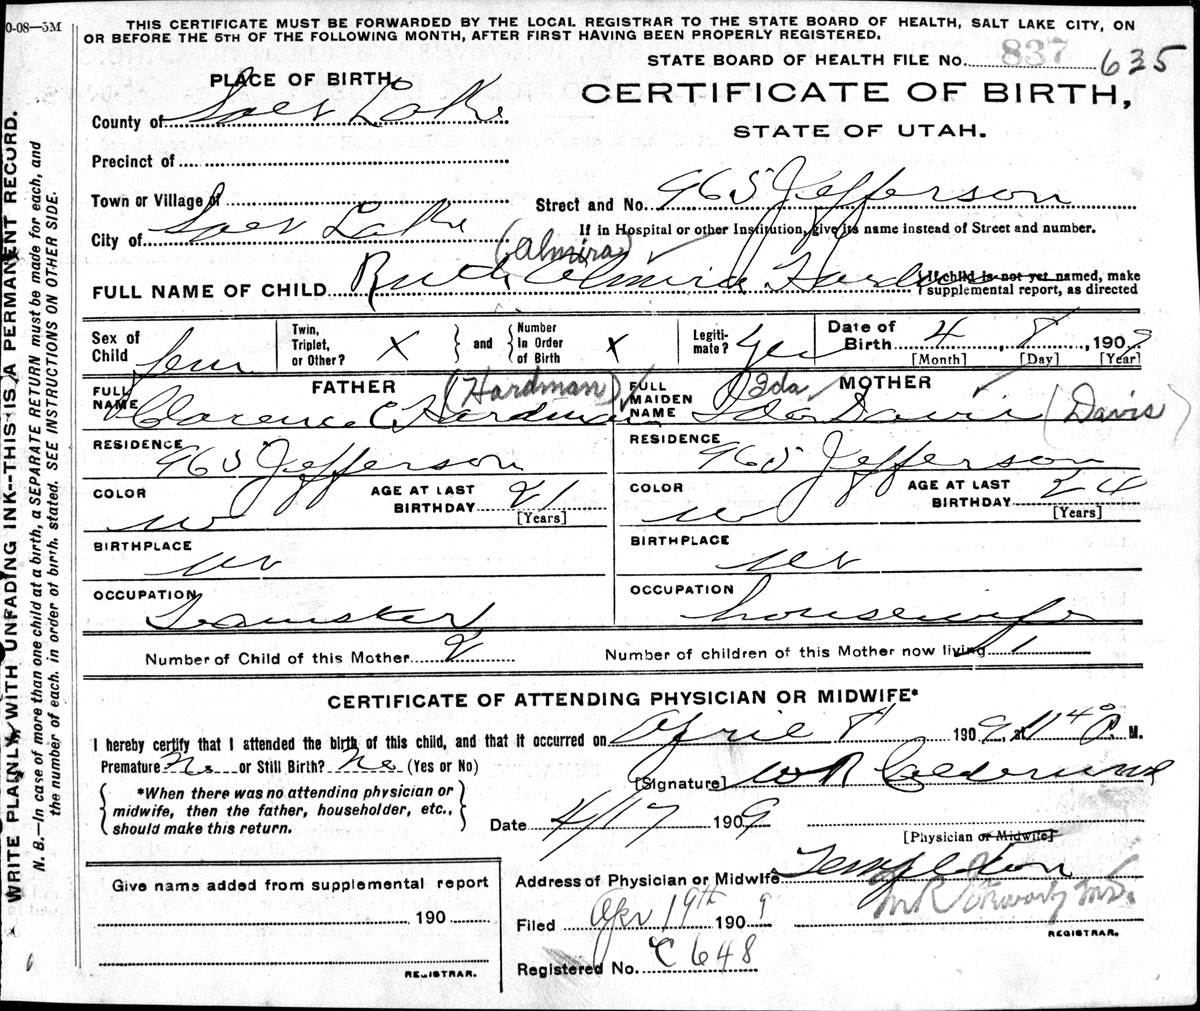 0-08—5M
THIS CERTIFICATE MUST BE FORWARDED BY THE LOCAL REGISTRAR TO THE STATE BOARD OF HEALTH, SALT LAKE CITY, ON
OR BEFORE THE 5TH OF THE FOLLOWING MONTH, AFTER FIRST HAVING BEEN PROPERLY REGISTERED.
STATE BOARD OF HEALTH FILE No. 837 635
PLACE OF BIRTH
CERTIFICATE OF BIRTH,
STATE OF UTAH.
County of Salt Lake
Precinct of
Town or Village of
Street and No. 965 Jefferson
City of Salt Lake
If in Hospital or other Institution, give its name instead of Street and number.
(Almira)
FULL NAME OF CHILD Ruth Almira Hardman
{ If child is not yet named, make
supplemental report, as directed
Sex of Child fem
Twin, Triplet, or Other? X } and { Number In Order of Birth X
Legiti-mate? Yes
Date of Birth 4, 8, 1909
[Month] [Day] [Year]
FATHER (Hardman)
FULL NAME Clarence C Hardman
RESIDENCE 965 Jefferson
COLOR W
AGE AT LAST BIRTHDAY 21 [Years]
BIRTHPLACE Ut
OCCUPATION Teamster
MOTHER Ida
FULL MAIDEN NAME Ida Davis (Davis)
RESIDENCE 965 Jefferson
COLOR W
AGE AT LAST BIRTHDAY 24 [Years]
BIRTHPLACE Ut
OCCUPATION housewife
Number of Child of this Mother 2 Number of children of this Mother now living 1
CERTIFICATE OF ATTENDING PHYSICIAN OR MIDWIFE*
I hereby certify that I attended the birth of this child, and that it occurred on April 8 1909, at 1140 P. M.
Premature No or Still Birth? No (Yes or No)
[Signature] W R
{ *When there was no attending physician or
midwife, then the father, householder, etc.,
should make this return. }
Date 4/17 1909
[Physician or Midwife]
Address of Physician or Midwife Templeton
Filed Apr 19th 1909
REGISTRAR.
Registered No. C 648
Give name added from supplemental report
190
REGISTRAR.
WRITE PLAINLY, WITH UNFADING INK--THIS IS A PERMANENT RECORD.
N. B.—In case of more than one child at a birth, a SEPARATE RETURN must be made for each, and
the number of each, in order of birth, stated. SEE INSTRUCTIONS ON OTHER SIDE.